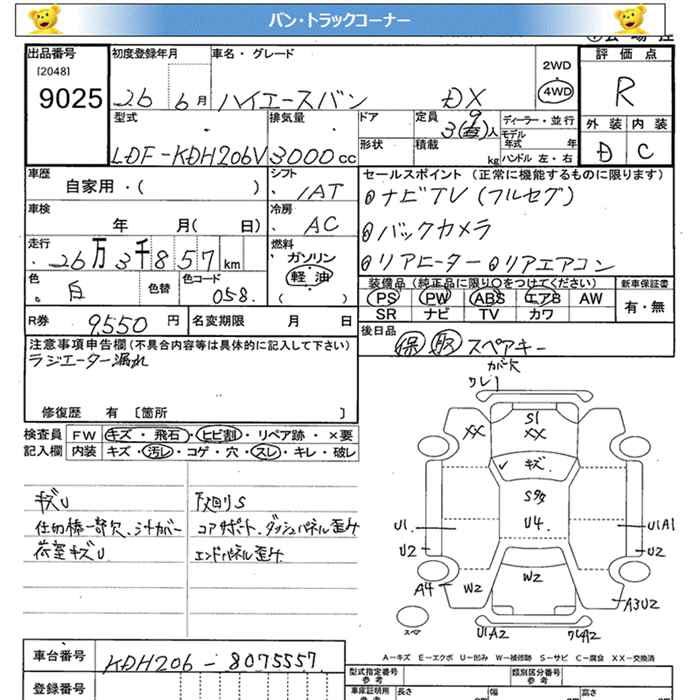 バン・トラックコーナー
出品番号
[2048]
9025
初度登録年月
26 6月
車名・グレード
ハイエースバン DX
2WD
4WD
評価点
R
外装 内装
D C
型式
LDF-KDH206V
排気量
3000cc
ドア
形状
定員
9
3()人
積載
kg
ディーラー・並行
モデル
年式 年
ハンドル 左・右
車歴
自家用・( )
シフト
IAT
車検
年 月( 日)
冷房
AC
セールスポイント(正常に機能するものに限ります)
ナビTV(フルセグ)
バックカメラ
リアヒーター リアエアコン
走行
26万3千857km
燃料
ガソリン
軽油
( )
色
白
色替
色コード
058.
装備品(純正品に限り○をつけてください)
PS PW ABS エアB AW
SR ナビ TV カワ
新車保証書
有・無
R券
9,550円
名変期限 月 日
後日品
保 取 スペアキー
注意事項申告欄(不具合内容等は具体的に記入して下さい)
ラジエーター漏れ
修復歴 有 〔箇所 〕
検査員
記入欄
FW キズ・飛石・ヒビ割・リペア跡・×要
内装 キズ・汚レ・コゲ・穴・スレ・キレ・破レ
キズU
荷室キズU
下廻りS
コアサポート、ダッシュパネル歪ケ
エンドパネル歪ケ
ワレ1
S1
XX
XX
キズ
U4
U1
U2
U1A1
U2
A4
W2
W2
A3U2
U1A2
スペア
A―キズ E―エクボ U―凹み W―補修跡 S―サビ C―腐食 XX―交換済
車台番号
KDH206-8075557
登録番号
型式指定番号
参考
類別区分番号
参考
車庫証明用
参考
長さ
幅
高さ